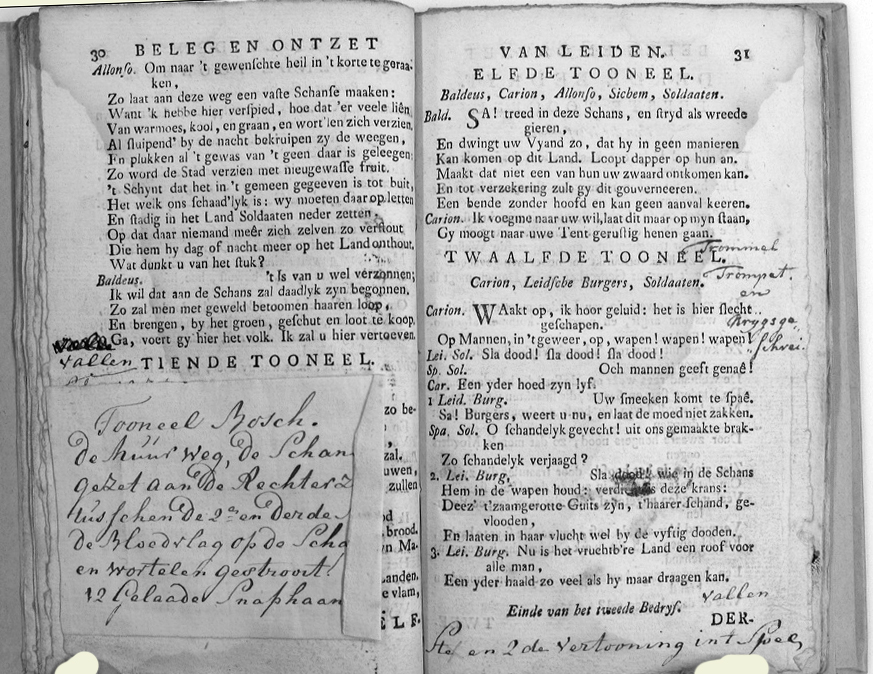 30 BELEG EN ONTZET
Allonso. Om naar 't gewenschte heil in 't korte te geraa-
ken,
Zo laat aan deze weg een vaste Schanse maaken:
Want 'k hebbe hier verspied, hoe dat 'er veele liên
Van warmoes, kool, en graan, en wort'len zich verzien,
Al sluipend' by de nacht bekruipen zy de weegen,
En plukken al 't gewas van 't geen daar is geleegen;
Zo word de Stad verzien met nieugewasse fruit.
't Schynt dat het in 't gemeen gegeeven is tot buit,
Het welk ons schaad'lyk is: wy moeten daar op letten
En stadig in het Land Soldaaten neder zetten,
Op dat daar niemand meêr zich zelven zo verstout
Die hem by dag of nacht meer op het Land onthout,
Wat dunkt u van het stuk?
Baldeus. 't Is van u wel verzonnen;
Ik wil dat aan de Schans zal daadlyk zyn begonnen.
Zo zal men met geweld betoomen haaren loop,
En brengen, by het groen, geschut en loot te koop.
Ga, voert gy hier het volk. Ik zal u hier vertoeven.
vallen
TIENDE TOONEEL.
Tooneel Bosch.
de huur weg, de Schan
gezet aan de Rechter z
tusschen de 2e en derde
de Bloedvlag op de Scha
en wortelen gestrooit.
12 Gelaade Snaphaan
zo be-
zal.
uwen,
zullen
od
brood.
n Ma-
anden,
e vlam,
ELF-
VAN LEIDEN. 31
ELFDE TOONEEL.
Baldeus, Carion, Allonso, Sichem, Soldaaten.
Bald. SA! treed in deze Schans, en stryd als wreede
gieren,
En dwingt uw Vyand zo, dat hy in geen manieren
Kan komen op dit Land. Loopt dapper op hun an.
Maakt dat niet een van hun uw zwaard ontkomen kan.
En tot verzekering zult gy dit gouverneeren.
Een bende zonder hoofd en kan geen aanval keeren.
Carion. Ik voeg me naar uw wil, laat dit maar op myn staan,
Gy moogt naar uwe Tent gerustig henen gaan.
Trommel
TWAALFDE TOONEEL.
Trompet.
Carion, Leidsche Burgers, Soldaaten.
en
Krygsge
schrei.
Carion. WAakt op, ik hoor geluid: het is hier slecht
geschapen.
Op Mannen, in 't geweer, op, wapen! wapen! wapen!
Lei. Sol. Sla dood! sla dood! sla dood!
Sp. Sol. Och mannen geeft genaê!
Car. Een yder hoed zyn lyf.
1 Leid. Burg. Uw smeeken komt te spaê.
Sa! Burgers, weert u nu, en laat de moed niet zakken.
Spa. Sol. O schandelyk gevecht! uit ons gemaakte brak-
ken
Zo schandelyk verjaagd?
2. Lei. Burg. Sla dood! wie in de Schans
Hem in de wapen houd: deze krans:
Deez' t'zaamgerotte Guits zyn, t'haarer schand, ge-
vlooden,
En laaten in haar vlucht wel by de vyftig dooden.
3. Lei. Burg. Nu is het vruchtb're Land een roof voor
alle man,
Een yder haald zo veel als hy maar draagen kan.
vallen
Einde van het tweede Bedryf.
DER-
en 2de vertooning int Speel